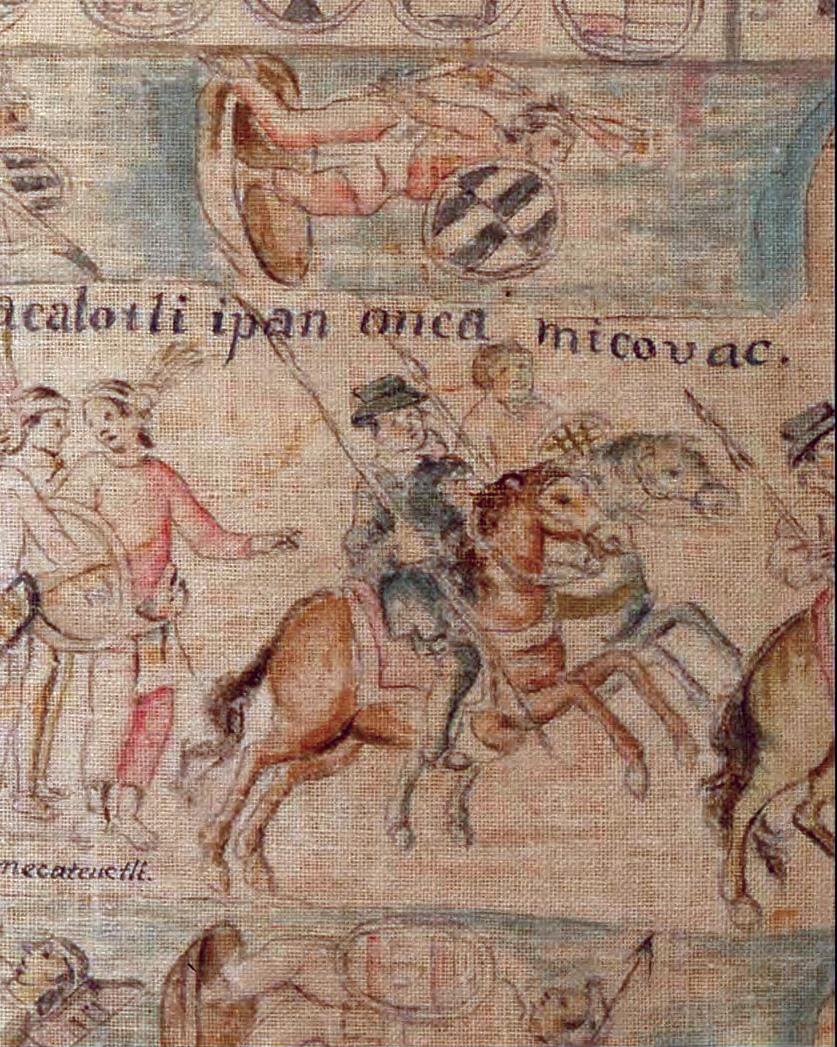 acalotli ipan onca micovac.
mecateuctli.